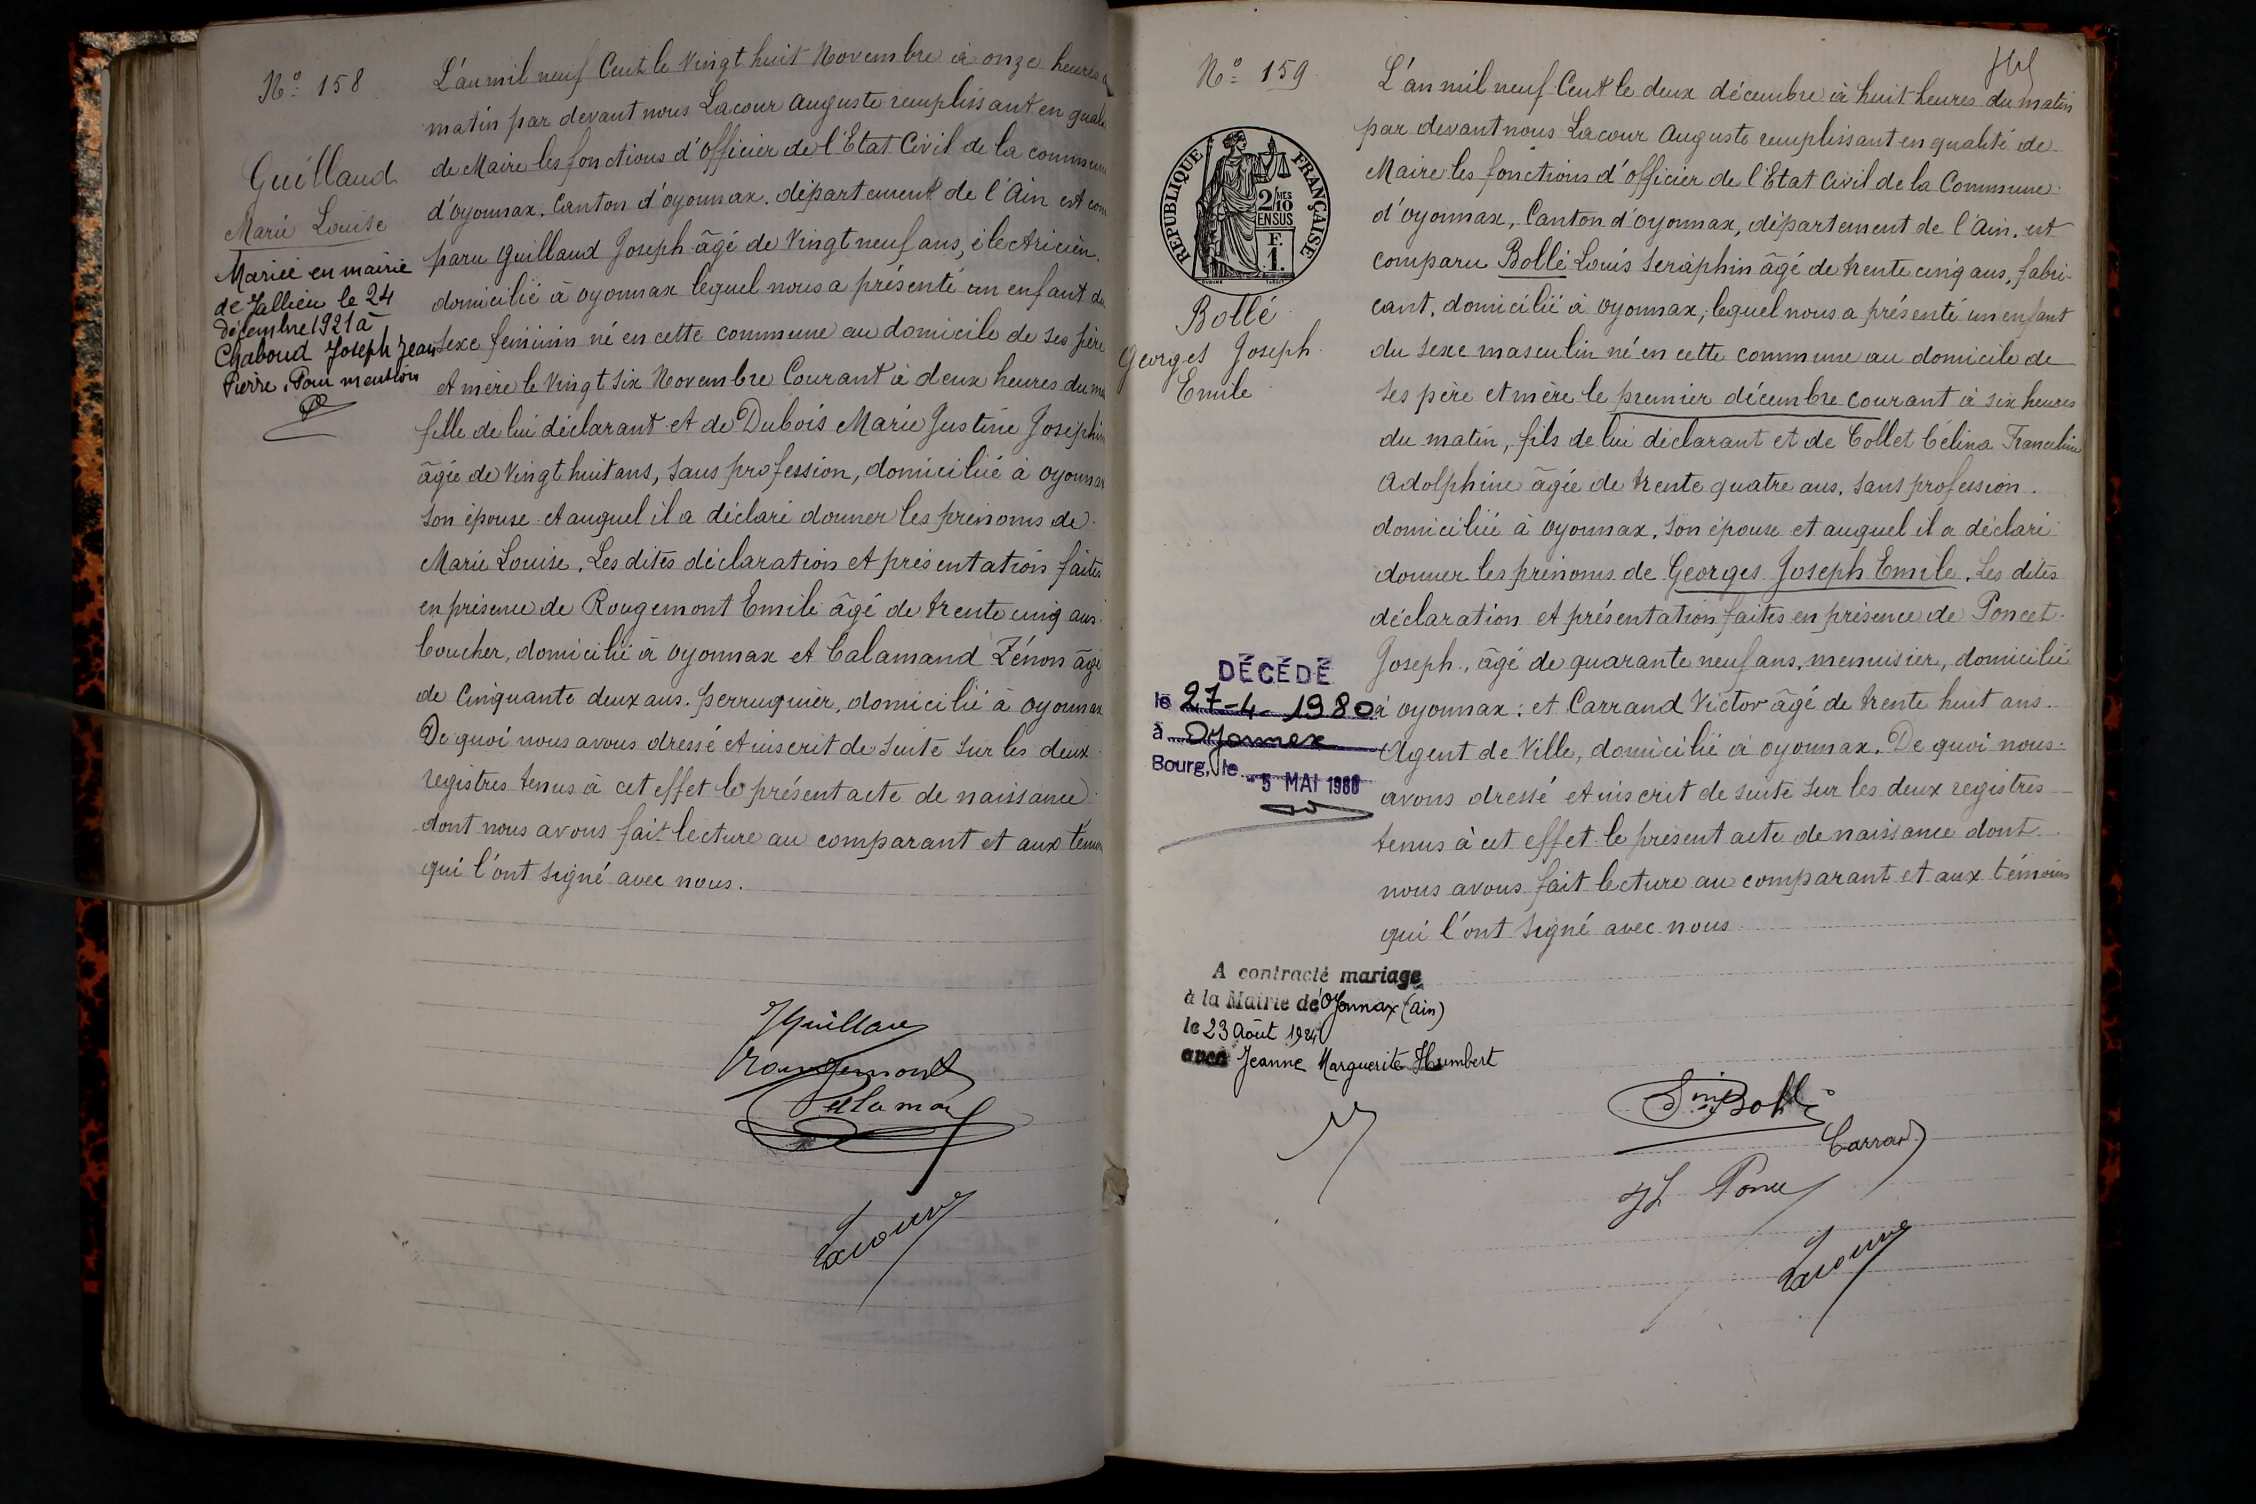 N° 158
Guillaud
Marie Louise
Mariée en mairie
de Jallieu le 24
décembre 1921 à
Chaboud Joseph Jean
Pierre. Pour mention
L'an mil neuf Cent le Vingt huit Novembre à onze heures
matin par devant nous Lacour Auguste remplissant en
de Maire les fonctions d'Officier de l'Etat Civil de la
d'oyonnax. Canton d'oyonnax. département de l'Ain est com
paru Guillaud Joseph âgé de Vingt neuf ans, électricien.
domicilié à oyonnax lequel nous a présenté un enfant du
sexe féminin né en cette commune au domicile de ses père
et mère le Vingt six Novembre Courant à deux heures du
fille de lui déclarant et de Dubois Marie Justine
âgée de Vingt huit ans, sans profession, domiciliée à
son épouse et auquel il a déclaré donner les prénoms de
Marie Louise. Les dites déclaration et présentation faites
en présence de Rougemont Emile âgé de trente cinq ans.
boucher, domicilié à oyonnax et Calamand Zénon âgé
de Cinquante deux ans. perruquier, domicilié à oyonnax
De quoi nous avons dressé et inscrit de suite sur les deux
registres tenus à cet effet le présent acte de naissance
dont nous avons fait lecture au comparant et aux
qui l'ont signé avec nous.
Lacour
N° 159
RÉPUBLIQUE FRANÇAISE
2/10 MES
EN SUS
F.
1.
Bollé
Georges Joseph
Emile
L'an mil neuf Cent le deux décembre à huit heures du matin
par devant nous Lacour Auguste remplissant en qualité de
Maire les fonctions d'officier de l'Etat Civil de la Commune
d'oyonnax, Canton d'oyonnax, département de l'Ain, est
comparu Bollé Louis Séraphin âgé de trente cinq ans, fabri-
cant, domicilié à oyonnax, lequel nous a présenté un enfant
du sexe masculin né en cette commune au domicile de
ses père et mère le premier décembre courant à six heures
du matin, fils de lui déclarant et de Collet Célina Franceline
Adolphine âgée de trente quatre ans. sans profession.
domiciliée à oyonnax, son épouse et auquel il a déclaré
donner les prénoms de Georges Joseph Emile. Les dites
déclaration et présentation faites en présence de Poncet
Joseph, âgé de quarante neuf ans, menuisier, domicilié
à oyonnax: et Carrand Victor âgé de trente huit ans
Agent de Ville, domicilié à oyonnax. De quoi nous
avons dressé et inscrit de suite sur les deux registres
tenus à cet effet le présent acte de naissance dont
nous avons fait lecture au comparant et aux témoins
qui l'ont signé avec nous
DÉCÉDÉ
le 27-4-1980
à Oyonnax
Bourg, le -5 MAI 1980
A contracté mariage
à la Mairie de Oyonnax (Ain)
le 23 Août 1924
avec Jeanne Marguerite Humbert
Bollé
Carrand
Lacour